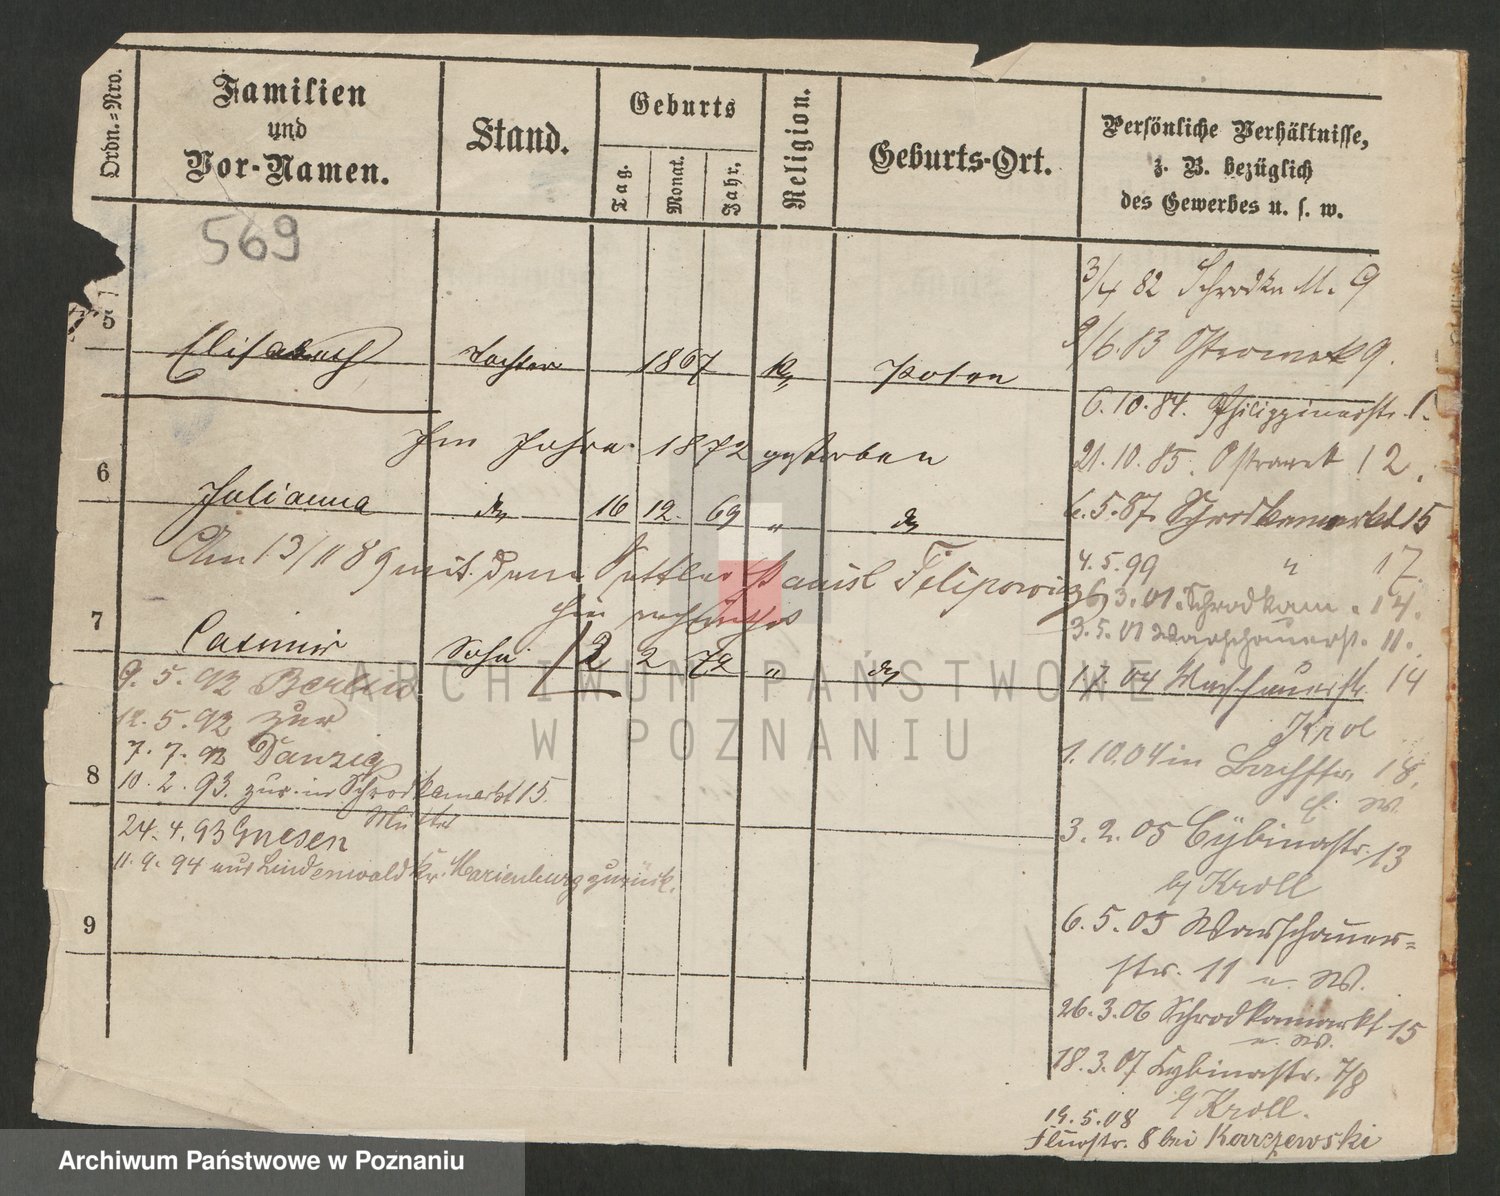 Ordn.=Nro.
Familien
und
Vor-Namen.
Stand.
Geburts
Tag.
Monat.
Jahr.
Religion.
Geburts-Ort.
Persönliche Verhältnisse,
z. B. bezüglich
des Gewerbes u. s. w.
569
5
Elisabeth Tochter 1867 Posen
Im Jahre 1872 gestorben
6
Julianna do 16 12. 69 " do
Am 13/11 89 mit dem Sattler Filipowicz
7
Casimir Sohn 12 2 72 " do
9. 5. 92 Berlin
12. 5. 92 zur
7. 7. 92 Danzig
8
10. 2. 93. zur. in Schrodkamarkt 15.
Mutter
24. 4. 93 Gnesen
11. 9. 94 aus Lindenwald Kr. Marienburg zurück.
9
3/4 82 Schrodka M. 9
9/6. 83 Ostrowek 9.
6. 10. 84. Philippinerstr. 1.
21. 10. 85. Ostrowek 12.
6. 5. 87. Schrodkamarkt 15
4. 5. 99 " 17.
6 3. 01. Schrodkam. 14.
3. 5. 01 Warschauerstr. 11.
Warschauerstr. 14
Krol
1. 10. 04 in Bachstr. 18.
3. 2. 05 Cybinastr. 13
b/ Kroll
6. 5. 05 Warschauer=
str. 11 u. W.
26. 3. 06 Schrodkamarkt 15
u. W.
18. 3. 07 Cybinastr. 7/8
b/ Kroll.
19. 5. 08
Flurstr. 8 bei Karzewski
ARCHIWUM PAŃSTWOWE
W POZNANIU
Archiwum Państwowe w Poznaniu